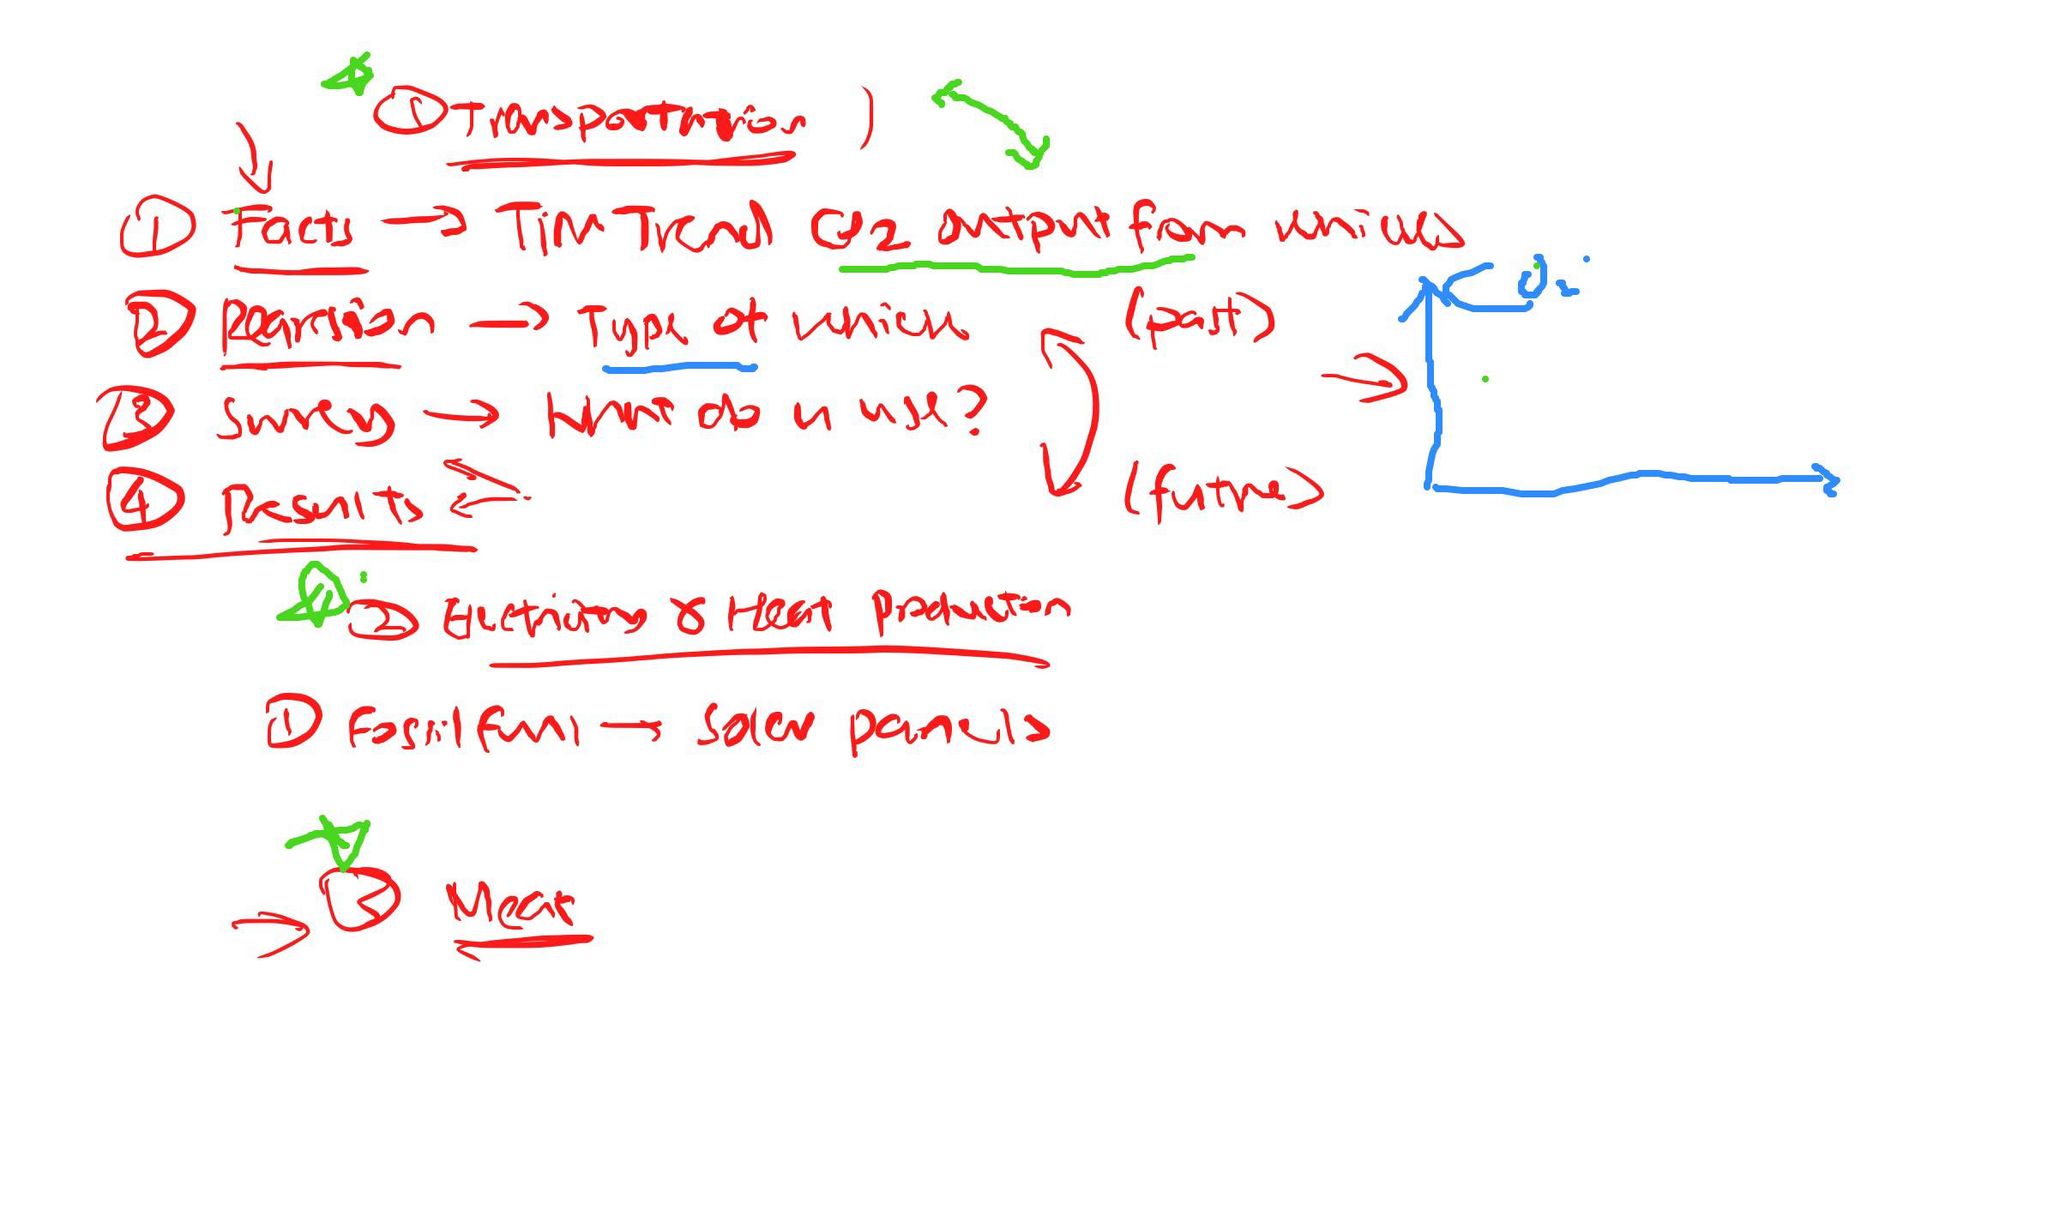 ① Transportation )
① Facts → Tim Trend CO2 output from vehicles
② Regression → Type of vehicle (past)
③ Survey → What do u use?
④ Results (future)
CO2
② Electricity & Heat Production
① Fossil fuel → Solar panels
③ Meat